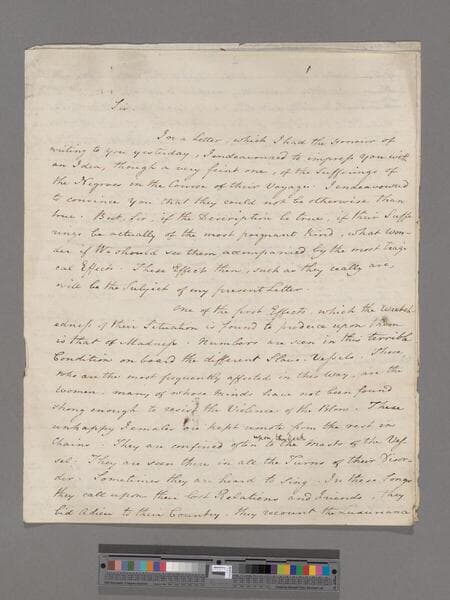 1
Sir.
In a Letter, which I had the Honour of
writing to you yesterday, I endeavoured to impress you with
an Idea, though a very faint one, of the Sufferings of
the Negroes in the Course of their Voyage. I endeavoured
to convince you that they could not be otherwise than
true. But, Sir, if the Description be true, if their Suffe
rings be actually of the most poignant kind, what won-
der if We should see them accompanied by the most tragi-
cal Effects. These Effects then, such as they really are,
will be the Subject of my present Letter.
One of the first Effects, which the Wretch-
edness of their Situation is found to produce upon them
is that of Madness. Numbers are seen in this terrible
Condition on board the different Slave-Vessels. Those,
who are the most frequently affected in this way, are the
Women, many of whose minds have not been found
strong enough to resist the Violence of the Blow. These
unhappy Females are kept remote from the rest in
Chains. They are confined often to the Masts of the Ves
upon Deck
sel. They are seen then in all the Turns of their Disor-
der. Sometimes they are heard to Sing. In these Songs
they call upon their lost Relations and Friends. They
bid Adieu to their Country. They recount the